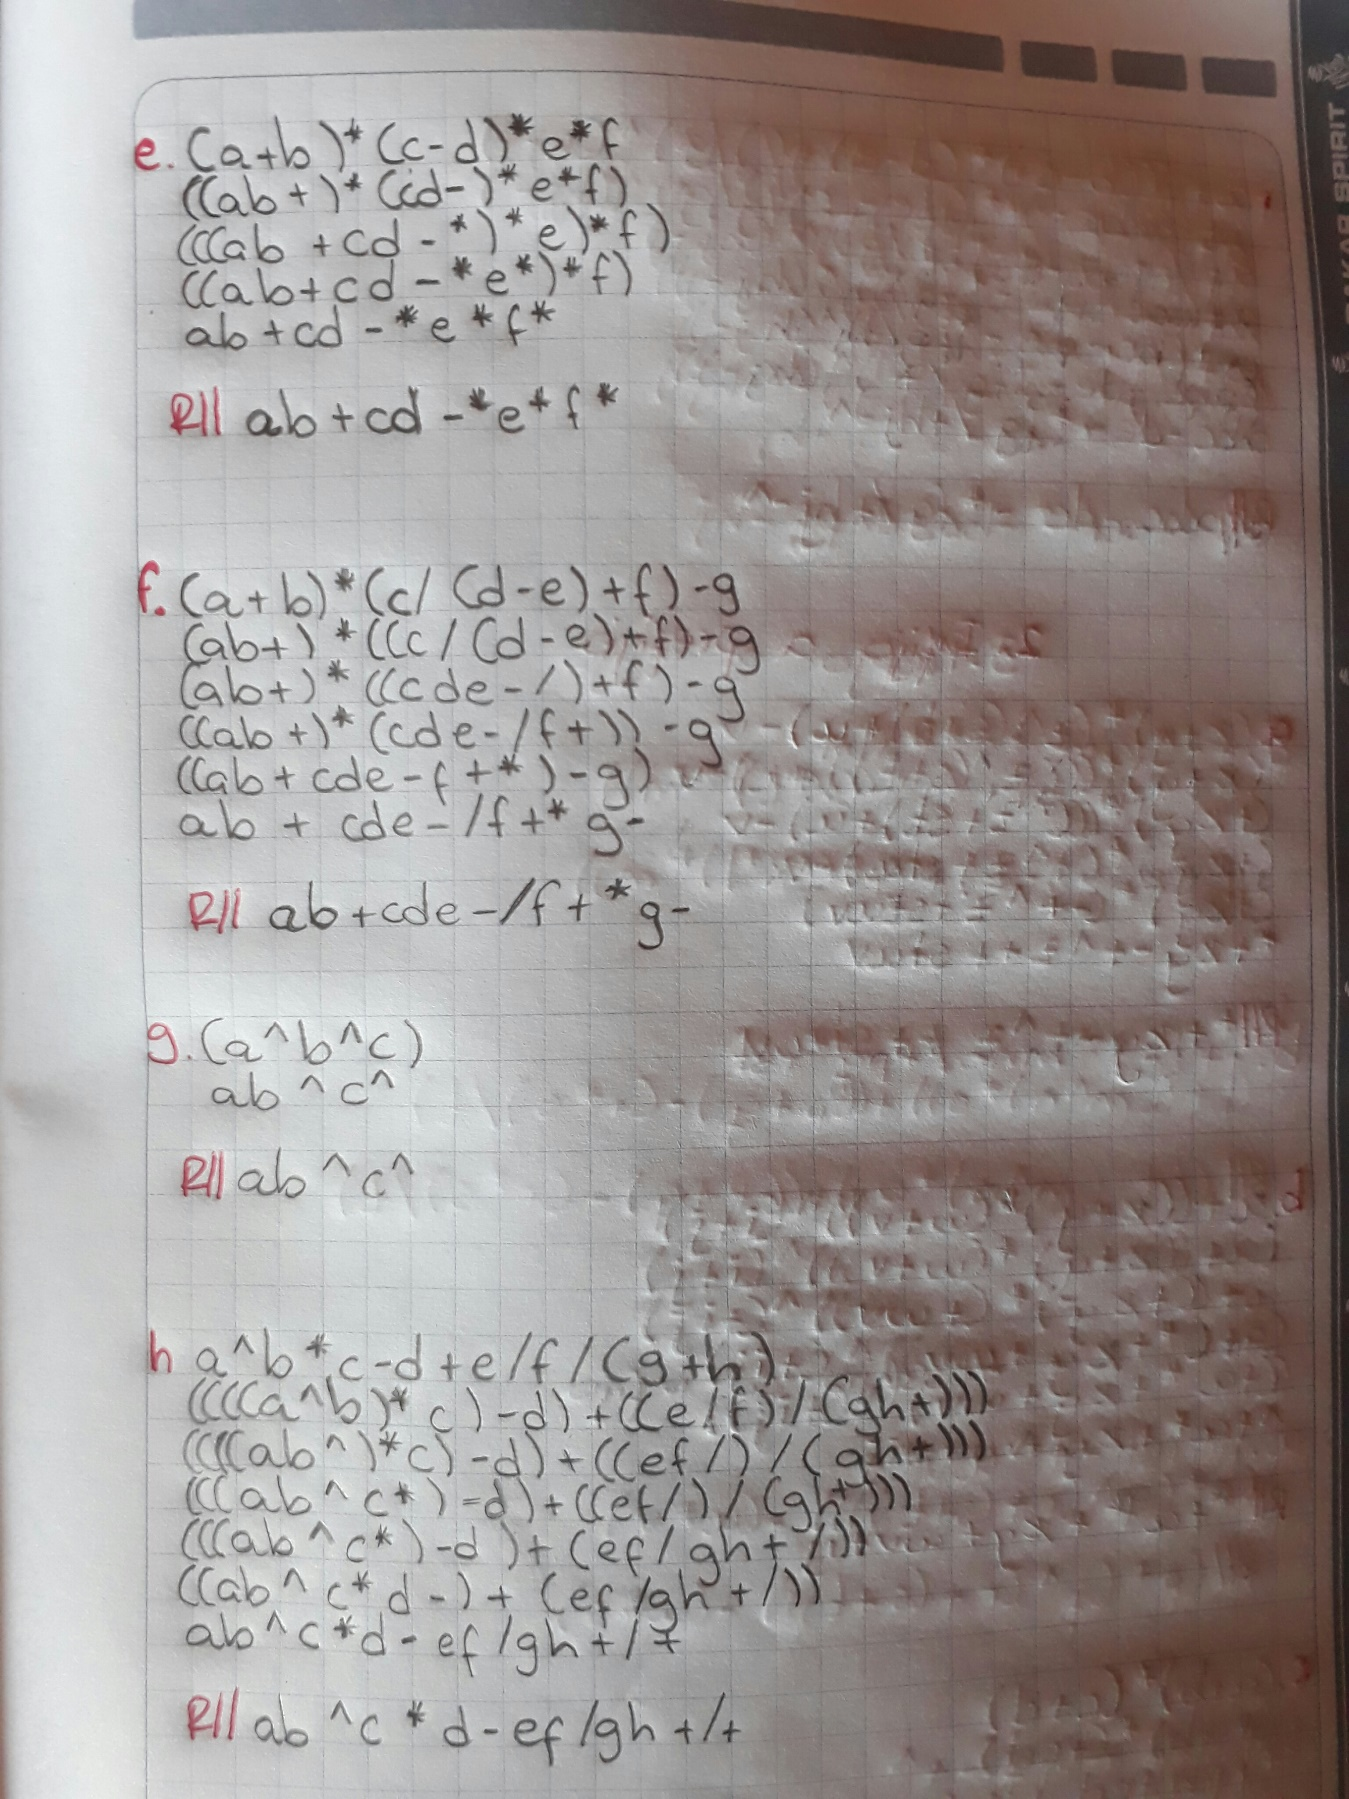 e. (a+b)*(c-d)*e*f
((ab+)*(cd-)*e*f)
(((ab+cd-*)*e)*f)
((ab+cd-*e*)*f)
ab+cd-*e*f*
R// ab+cd-*e*f*
f. (a+b)*(c/(d-e)+f)-g
(ab+)*((c/(d-e)+f)-g
(ab+)*((cde-/)+f)-g
((ab+)*(cde-/f+))-g
((ab+cde-f+*)-g)
ab+cde-/f+*g-
R// ab+cde-/f+*g-
g. (a^b^c)
ab^c^
R// ab^c^
h a^b*c-d+e/f/(g+h)
((((a^b)*c)-d)+((e/f)/(gh+)))
((((ab^)*c)-d)+((ef/)/(gh+)))
(((ab^c*)-d)+((ef/)/(gh+)))
(((ab^c*)-d)+(ef/gh+/))
((ab^c*d-)+(ef/gh+/))
ab^c*d-ef/gh+/+
R// ab^c*d-ef/gh+/+
SPIRIT